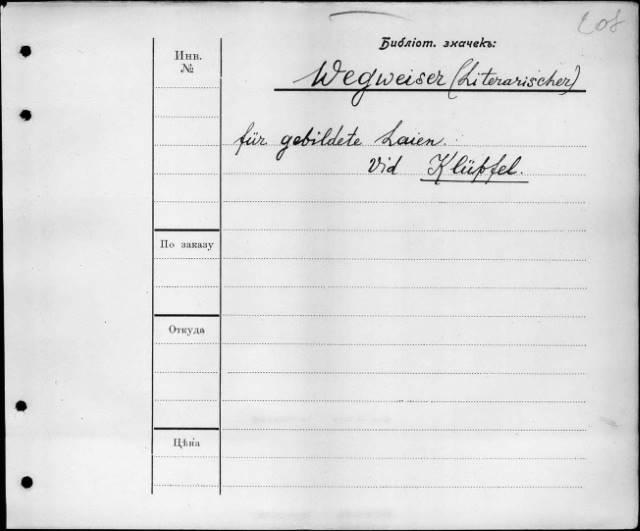 Библіот. значекъ:
Инв.
№
Wegweiser (Literarischer)
für gebildete Laien.
Vid Klüpfel.
По заказу
Откуда
Цѣна